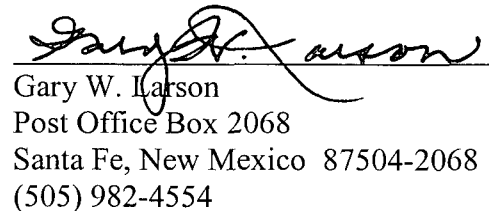 Gary W. Larson
Gary W. Larson
Post Office Box 2068
Santa Fe, New Mexico 87504-2068
(505) 982-4554